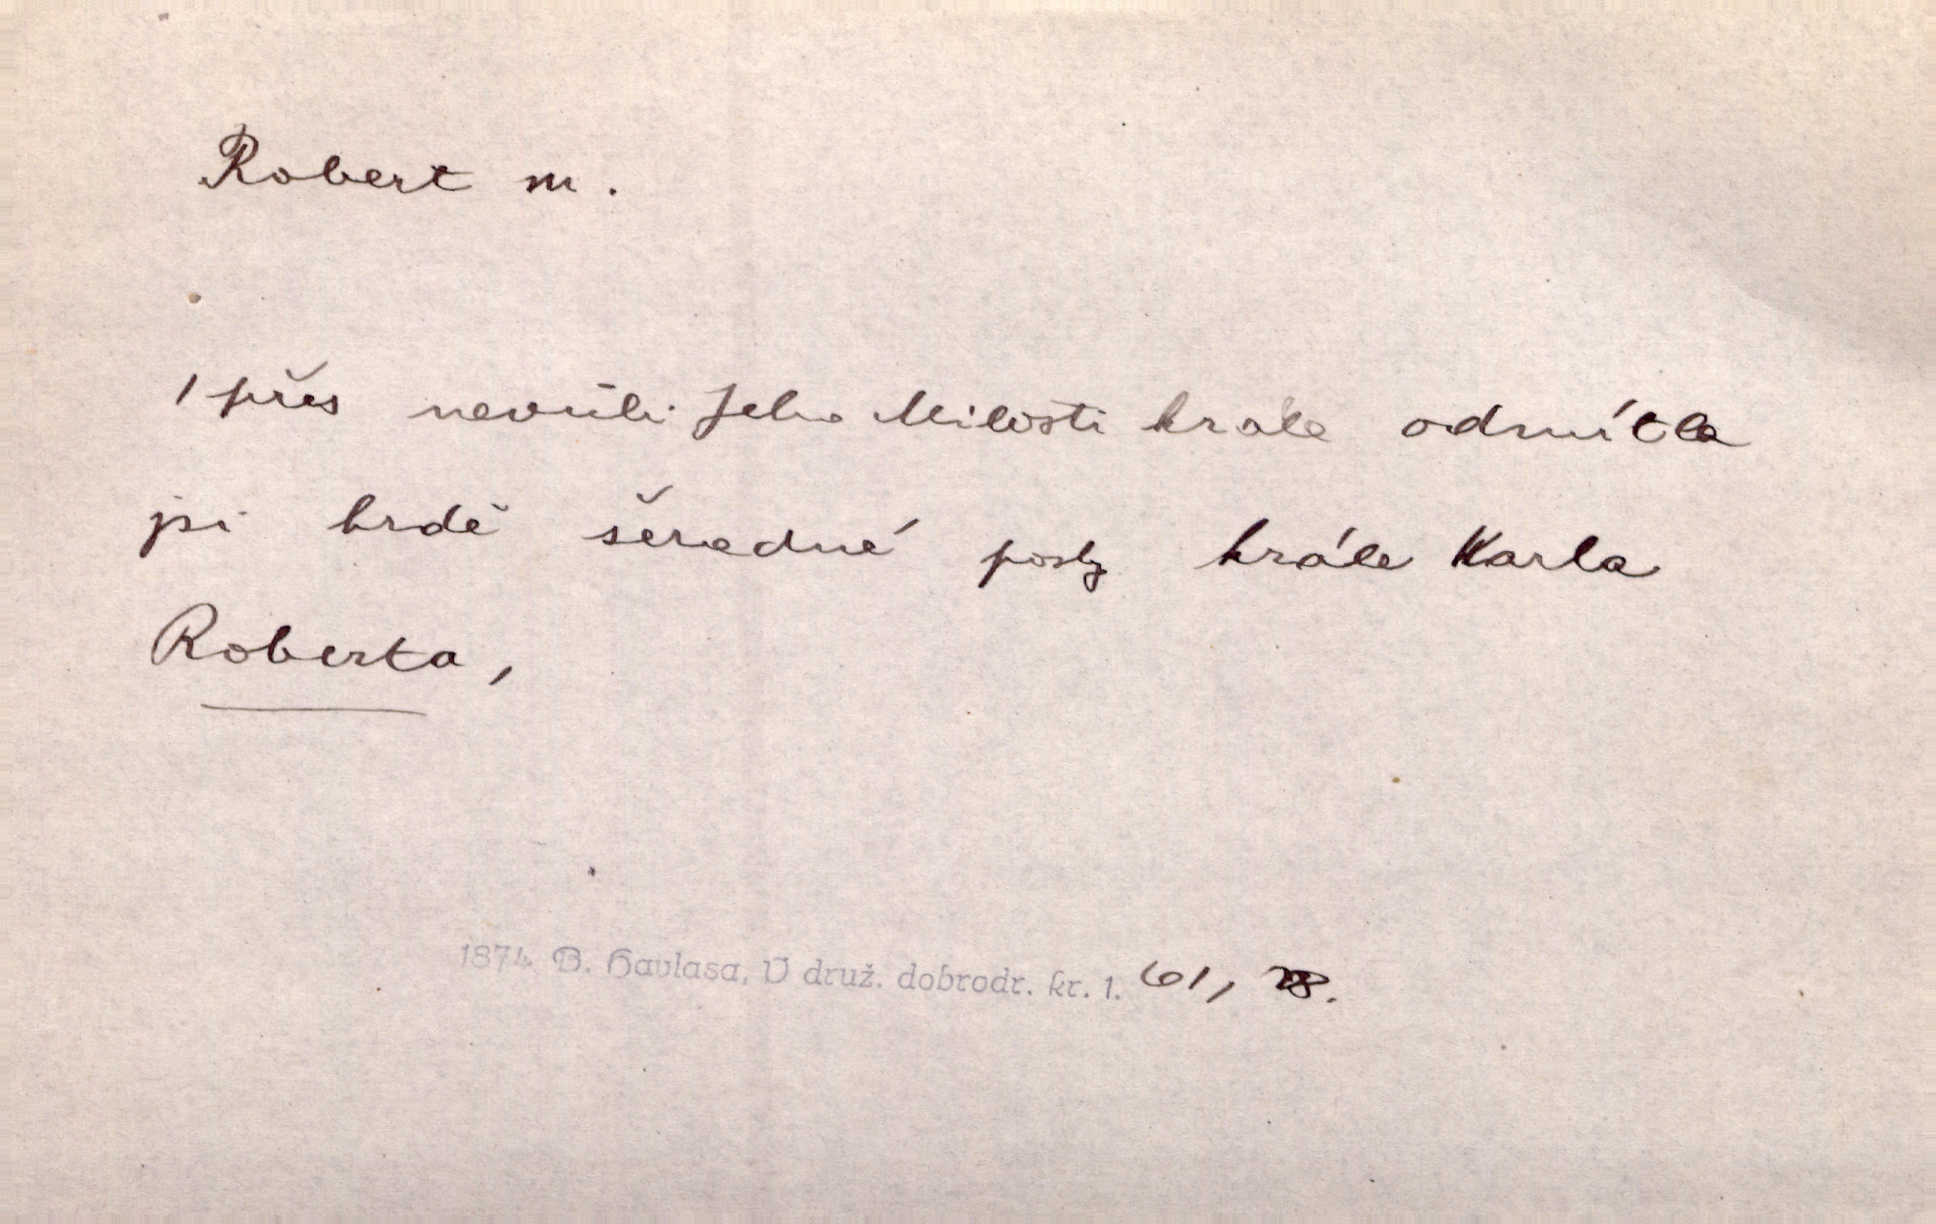 Robert m.
I přes nevůli Jeho Milosti krále odmítla
jsi hrdě šeredné posly krále Karla
Roberta,
1874 B. Havlasa, V druž. dobrodr. kr. 1. 61,